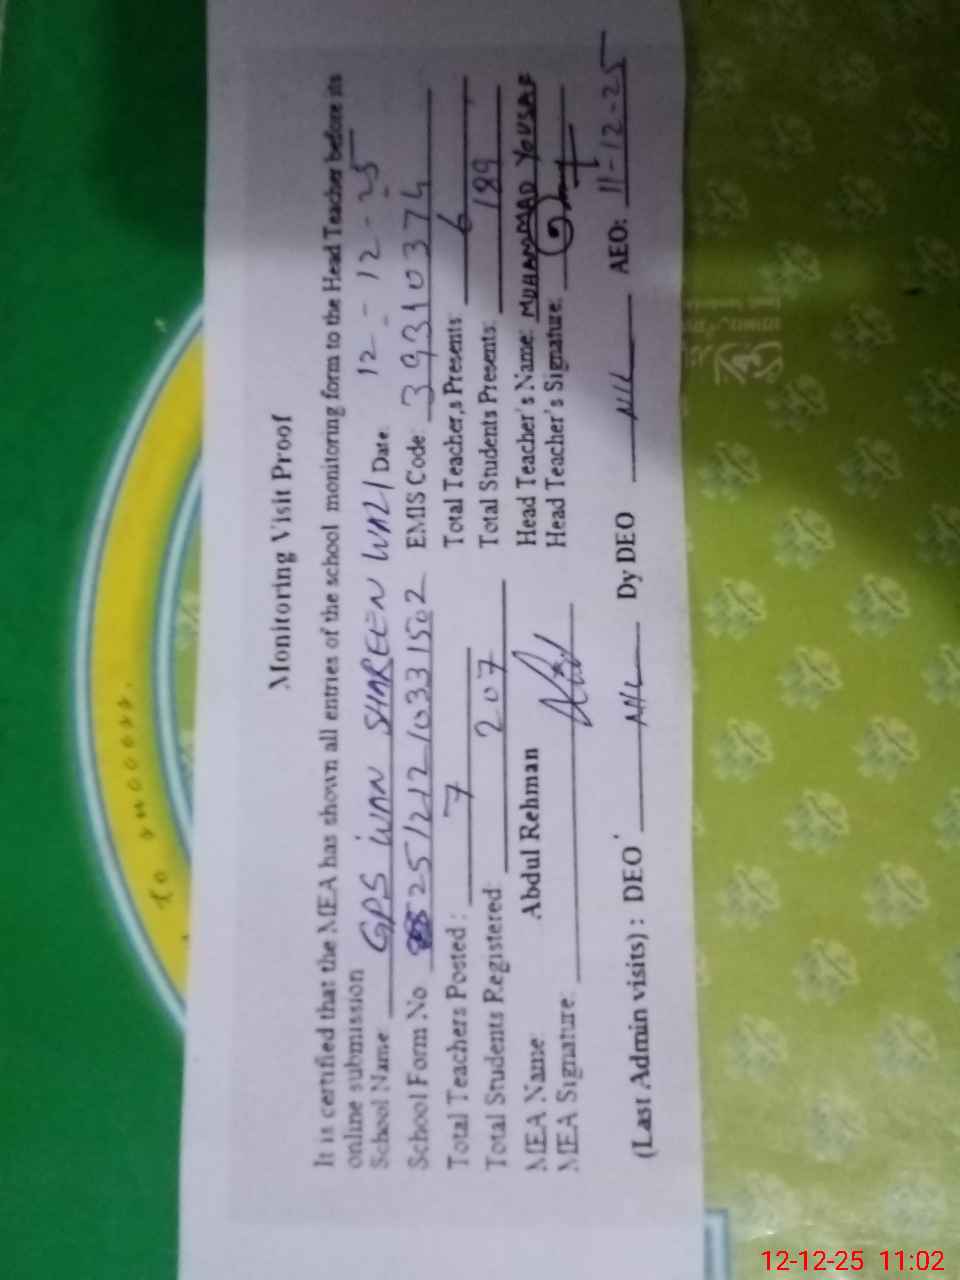 to success.
Monitoring Visit Proof
It is certified that the MEA has shown all entries of the school monitoring form to the Head Teacher before its
online submission
School Name: GPS WAN SHAREEN WALI Date: 12 - 12 - 25
School Form No 25121210331502 EMIS Code: 39310374
Total Teachers Posted: 7 Total Teacher,s Presents: 6
Total Students Registered: 207 Total Students Presents: 189
MEA Name: Abdul Rehman Head Teacher's Name: MUHAMMAD YOUSAF
MEA Signature: Head Teacher's Signature:
(Last Admin visits) : DEO NIL Dy DEO NIL AEO: 11-12-25
12-12-25 11:02